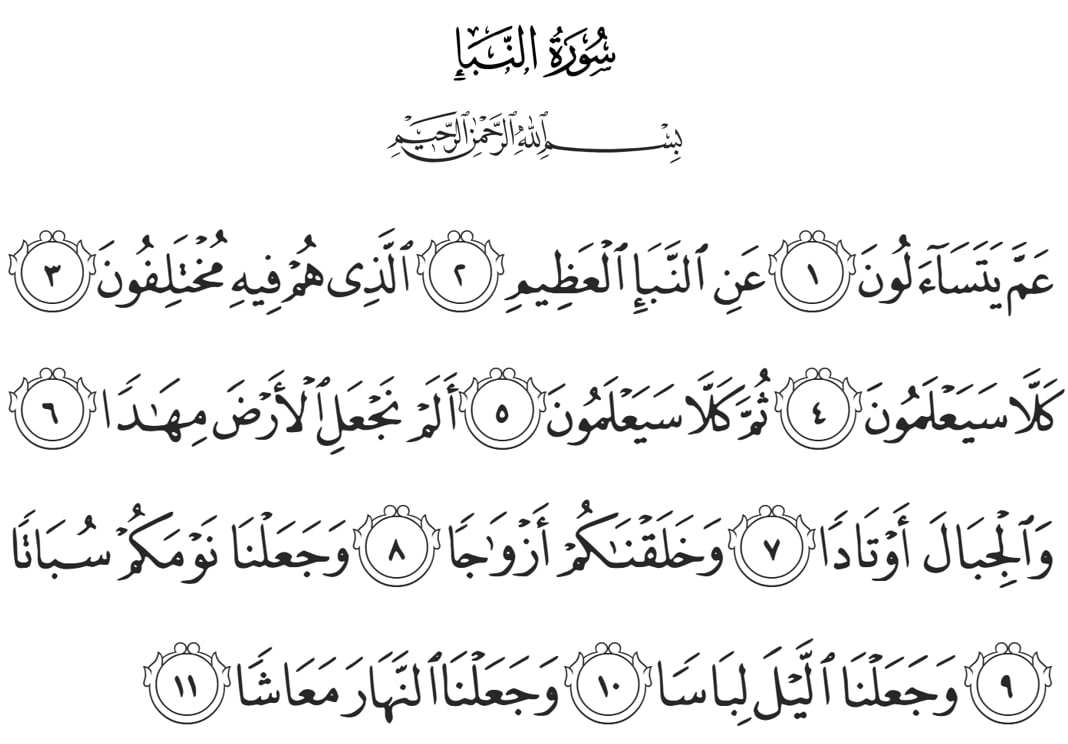 سُورَةُ النَّبَإِ
بِسْمِ ٱللَّهِ ٱلرَّحْمَٰنِ ٱلرَّحِيمِ
عَمَّ يَتَسَآءَلُونَ ١ عَنِ ٱلنَّبَإِ ٱلْعَظِيمِ ٢ ٱلَّذِى هُمْ فِيهِ مُخْتَلِفُونَ ٣
كَلَّا سَيَعْلَمُونَ ٤ ثُمَّ كَلَّا سَيَعْلَمُونَ ٥ أَلَمْ نَجْعَلِ ٱلْأَرْضَ مِهَـٰدًا ٦
وَٱلْجِبَالَ أَوْتَادًا ٧ وَخَلَقْنَـٰكُمْ أَزْوَٰجًا ٨ وَجَعَلْنَا نَوْمَكُمْ سُبَاتًا
٩ وَجَعَلْنَا ٱلَّيْلَ لِبَاسًا ١٠ وَجَعَلْنَا ٱلنَّهَارَ مَعَاشًا ١١